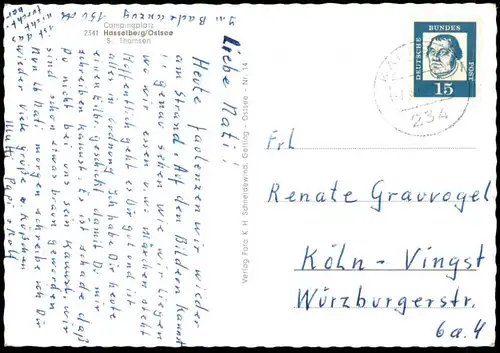 Campingplatz
2341 Hasselberg/Ostsee
S. Thomsen
Liebe Nati!
Heute faulenzen wir wieder
am Strand. Auf den Bildern kannst
Du genau sehen wie wir liegen
wo wir essen u. wo Märchen steht
Hoffentlich geht es Dir gut und ist
alles in Ordnung. Ich habe Dir heute
einen Eilbr. geschickt damit Du mir
schreiben kannst. Es ist schade daß
Du nicht bei uns sein kannst, wir
sind schon etwas braun geworden
Nun lb Nati morgen schreibe ich Dir
wieder viele Grüße u. Küßchen
Mutti Papi u Rolf
Verlag Foto K. H. Schneidewind, Gelting - Ostsee - Nr. 14
DEUTSCHE BUNDES POST
15
234
Frl
Renate Grauvogel
Köln-Vingst
Würzburgerstr.
6a.4